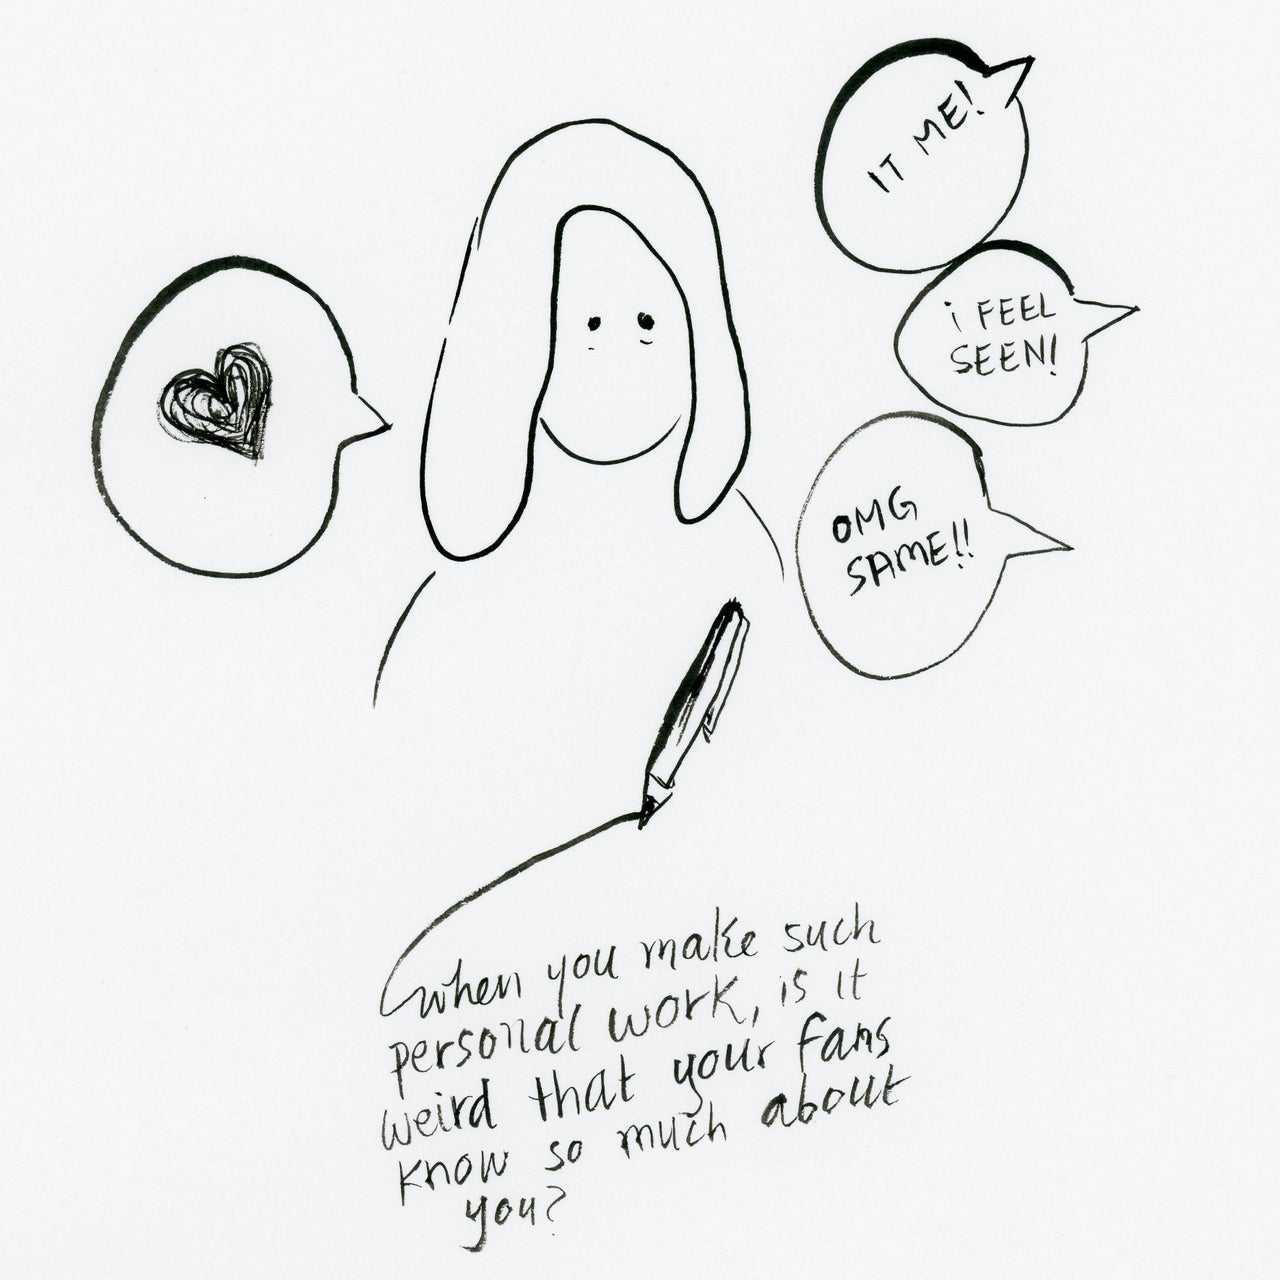 IT ME!
i FEEL
SEEN!
OMG
SAME!!
when you make such
personal work, is it
weird that your fans
know so much about
you?